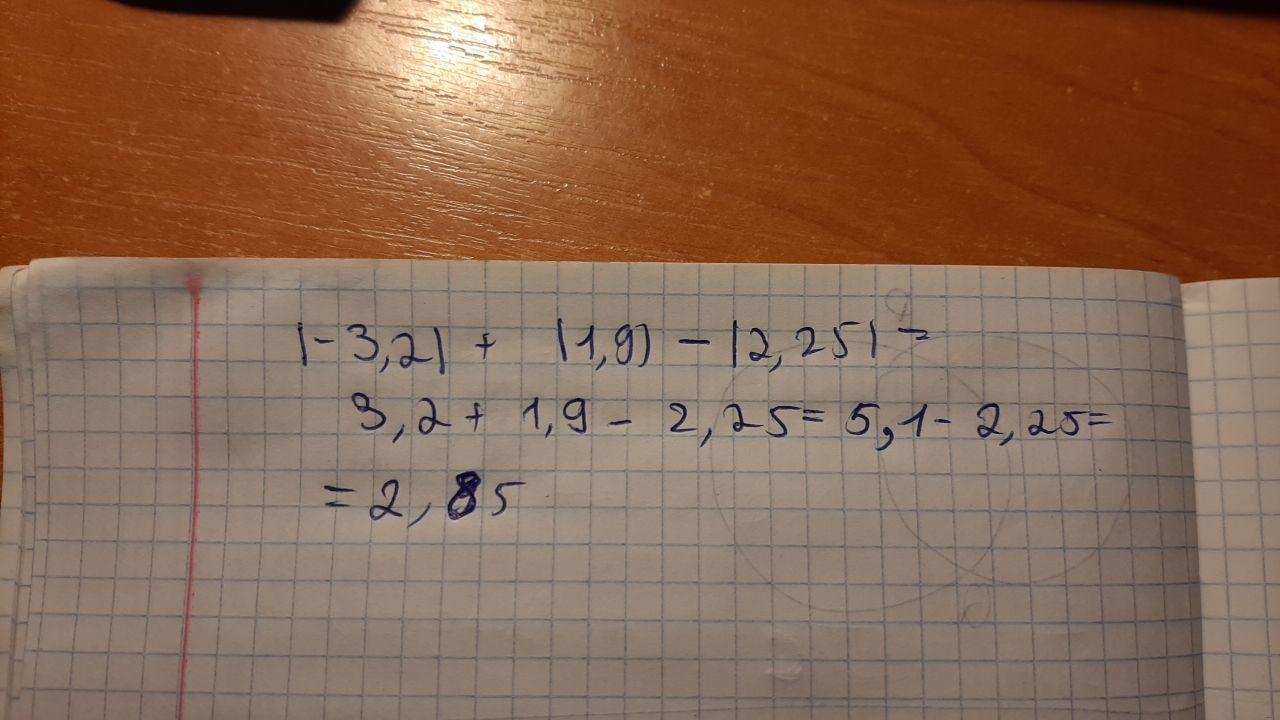 |-3,2| + |1,9| - |2,25| =
3,2 + 1,9 - 2,25 = 5,1 - 2,25 =
= 2,85